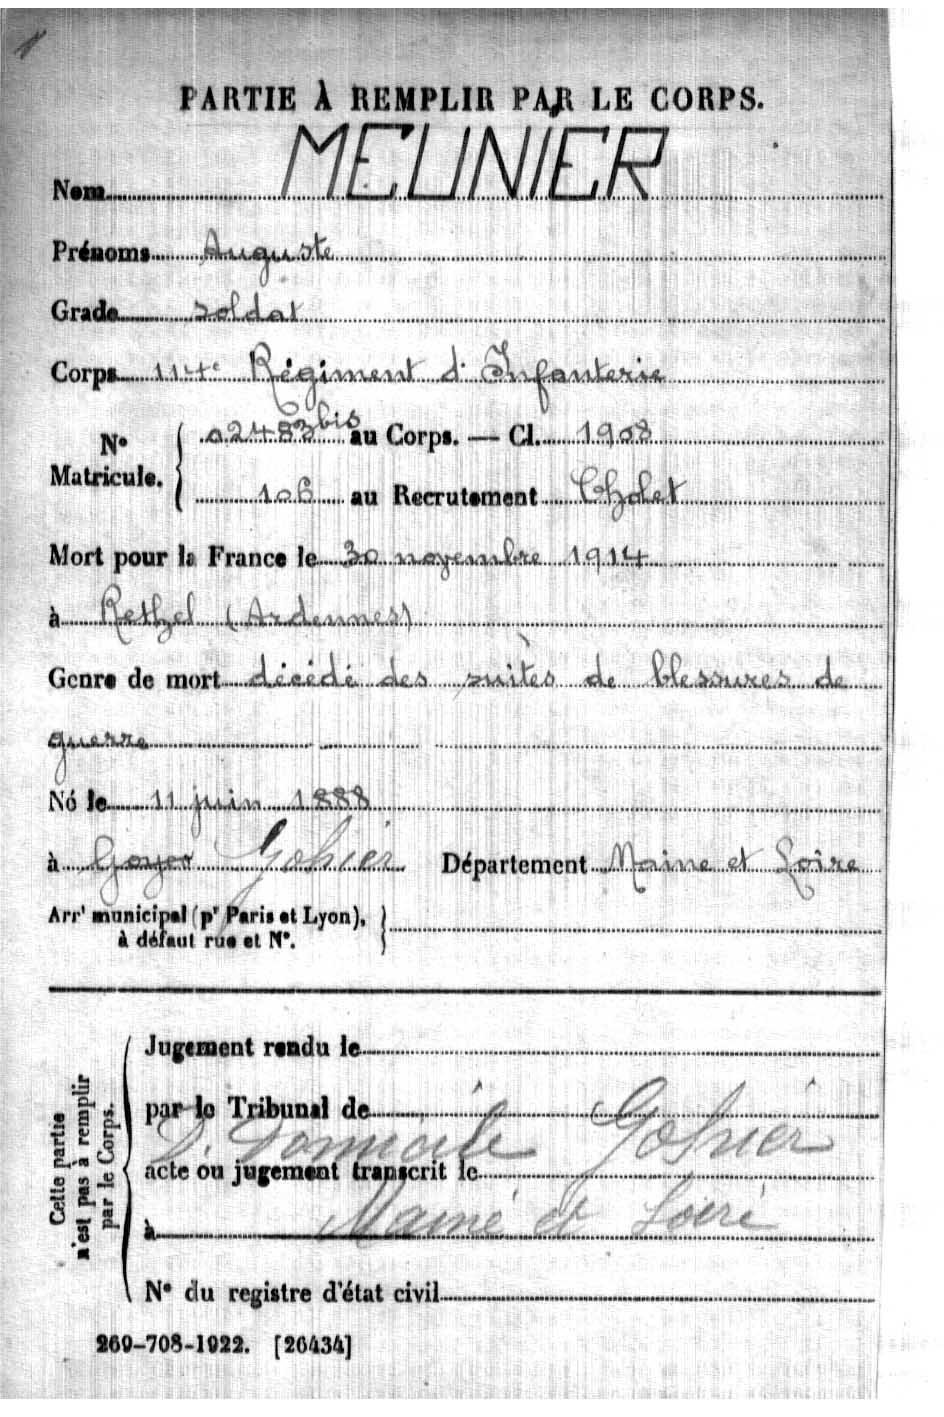 PARTIE À REMPLIR PAR LE CORPS.
Nom MEUNIER
Prénoms Auguste
Grade soldat
Corps 114e Régiment d'Infanterie
N° Matricule. 02483 bis au Corps. — Cl. 1908
106 au Recrutement Cholet
Mort pour la France le 30 novembre 1914
à Rethel (Ardennes)
Genre de mort décédé des suites de blessures de
guerre
Né le 11 juin 1888
à Goyer Gohier Département Maine et Loire
Arrt municipal (pr Paris et Lyon),
à défaut rue et N°.
Cette partie
n'est pas à remplir
par le Corps.
Jugement rendu le
par le Tribunal de
D. Domicile Gohier
acte ou jugement transcrit le
à Maine et Loire
N° du registre d'état civil
269-708-1922. [26434]